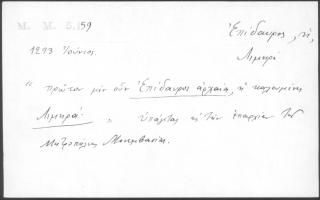 M. M. 5.159
Ἐπίδαυρος, ἡ,
Λιμηρά
1293 Ἰούνιος.
" πρῶτον μὲν οὖν Ἐπίδαυρος ἀρχαία, ἡ καλουμένη
Λιμηρά " ὑπάγεται εἰς τὴν ἐπαρχίαν τῆς
Μητροπόλεως Μονεμβασίας.